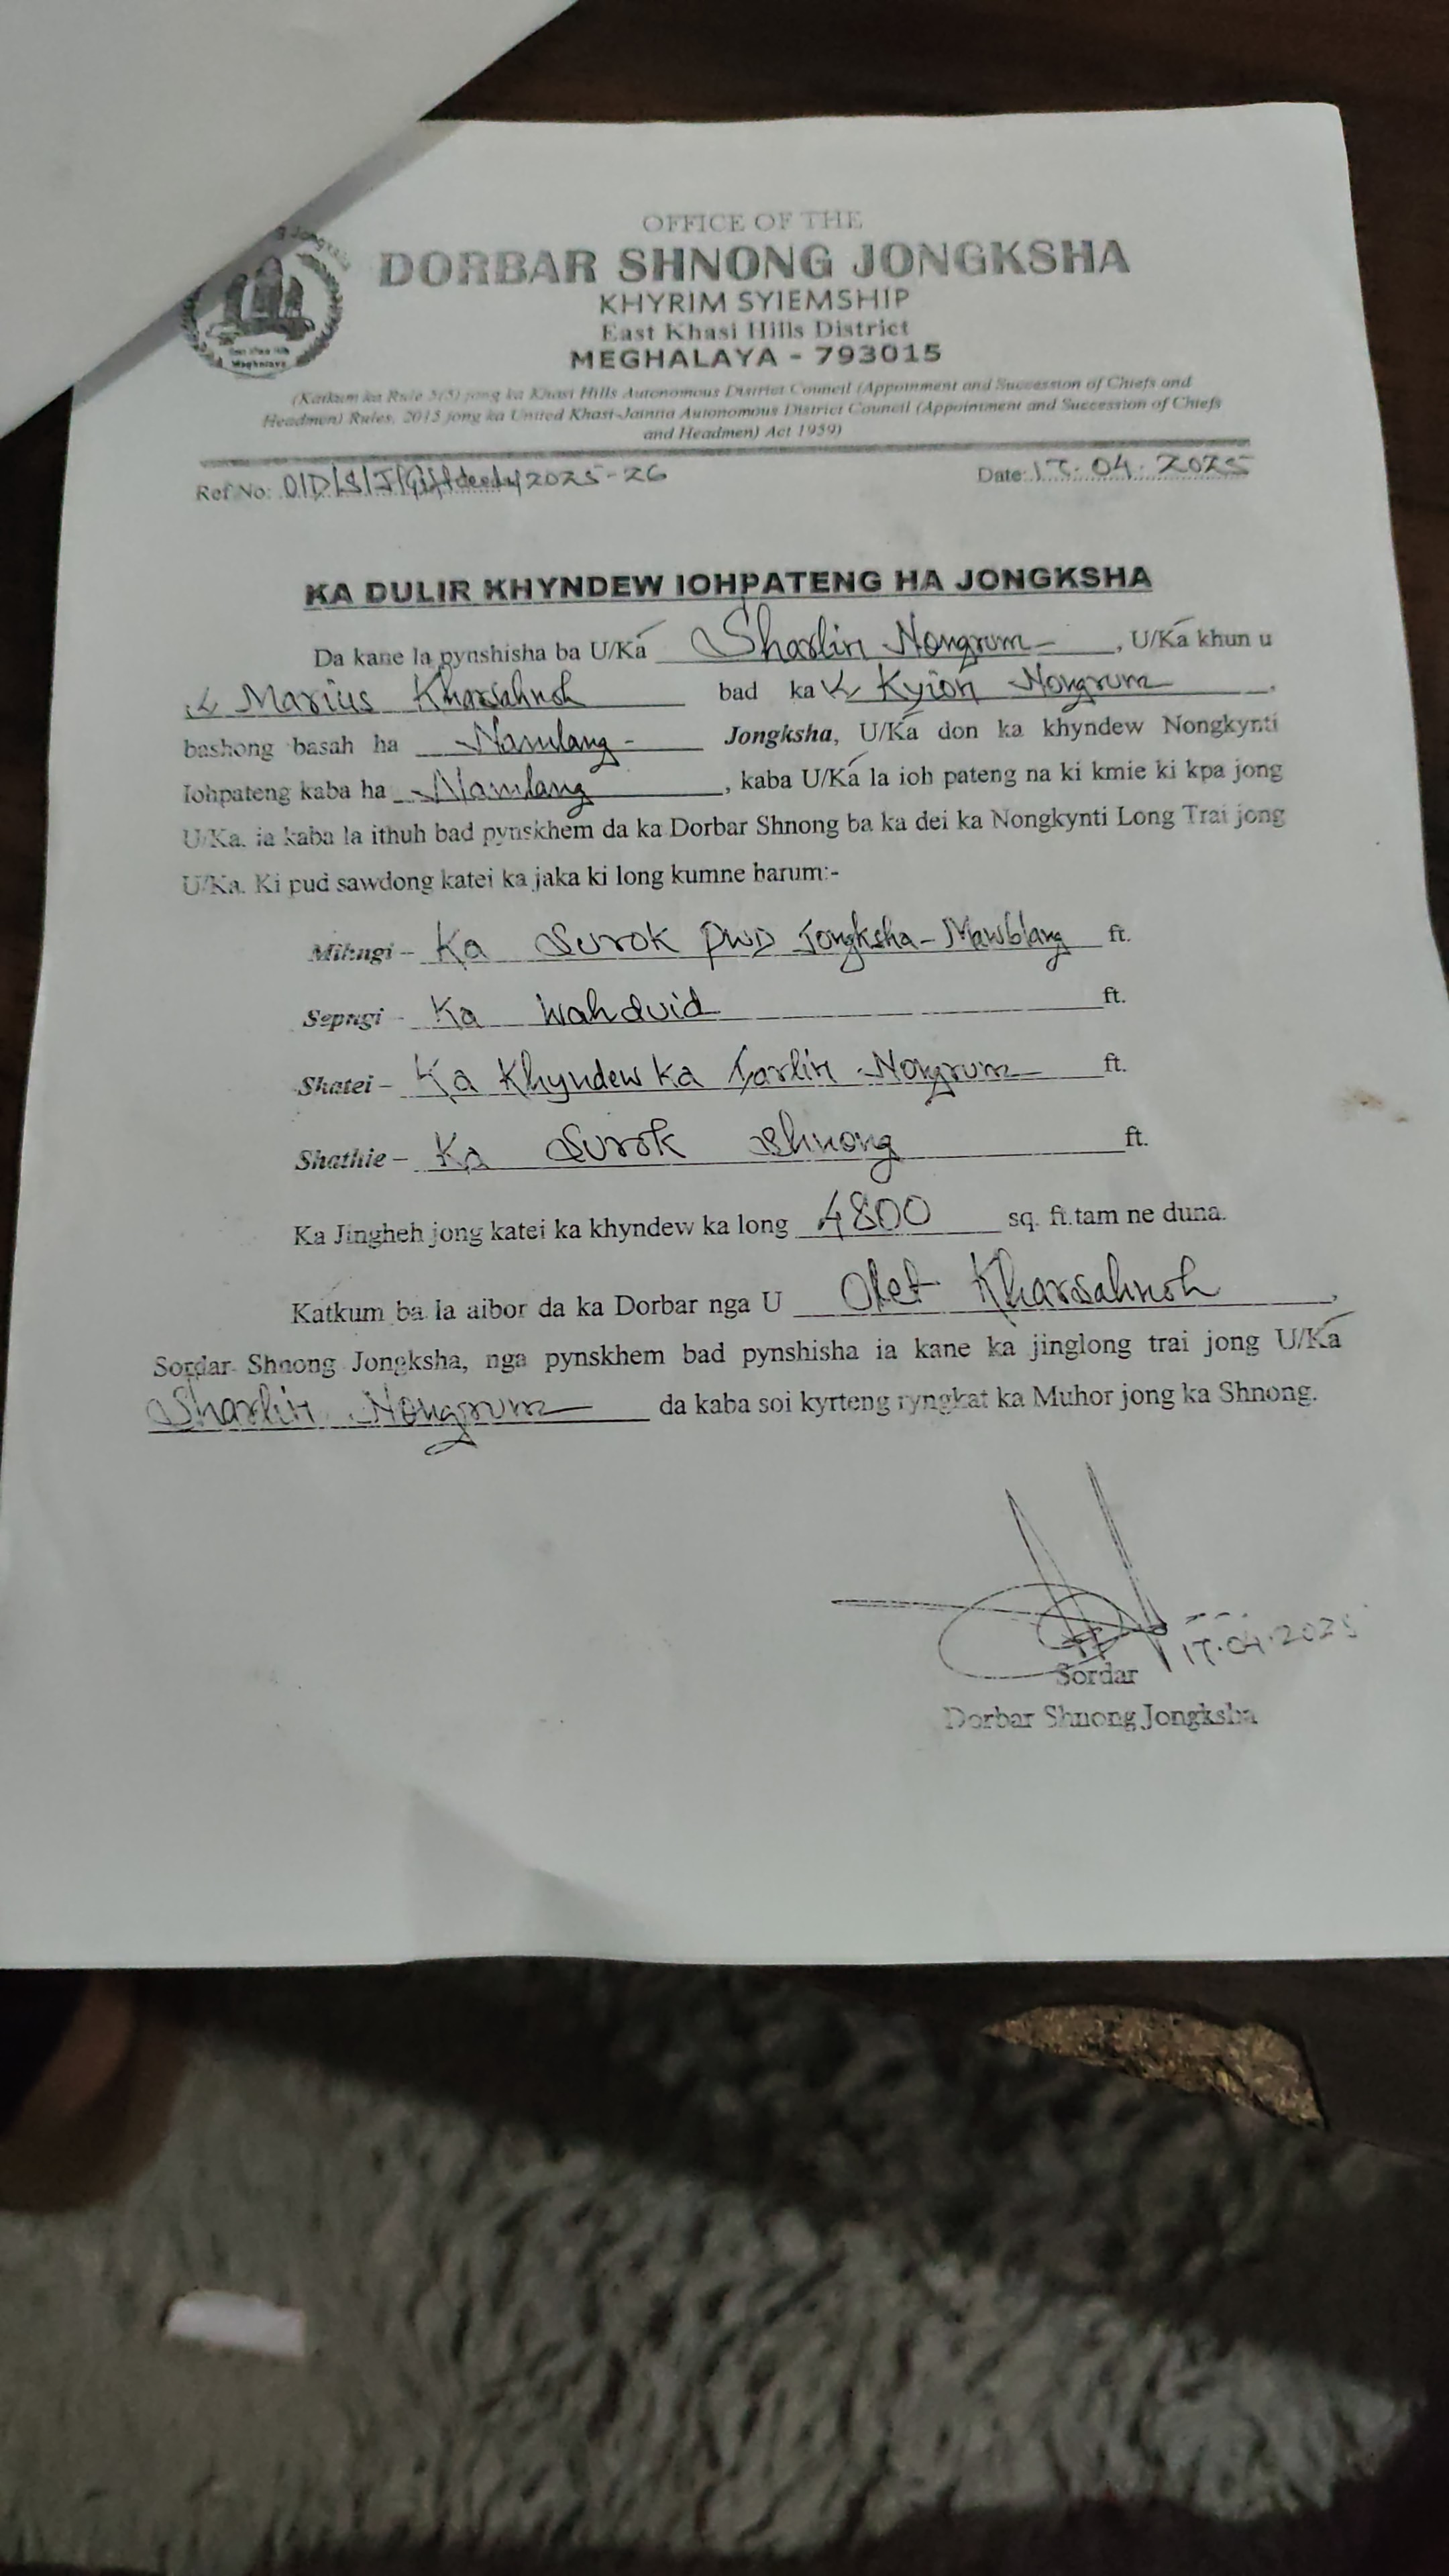 OFFICE OF THE
DORBAR SHNONG JONGKSHA
KHYRIM SYIEMSHIP
East Khasi Hills District
MEGHALAYA - 793015
Meghalaya
(Katkum ka Rule 5(5) jong ka Khasi Hills Autonomous District Council (Appointment and Succession of Chiefs and
Headmen) Rules, 2015 jong ka United Khasi-Jaintia Autonomous District Council (Appointment and Succession of Chiefs
and Headmen) Act 1959)
Ref No: 01/D/S/J/Giftdeedy/2025-26 Date: 17.04.2025
KA DULIR KHYNDEW IOHPATENG HA JONGKSHA
Da kane la pynshisha ba U/Ka Sharlin Nongrum, U/Ka khun u
(L) Marius Kharsahnoh bad ka (L) Kyion Nongrum,
bashong basah ha Namlang Jongksha, U/Ka don ka khyndew Nongkynti
Iohpateng kaba ha Namlang, kaba U/Ka la ioh pateng na ki kmie ki kpa jong
U/Ka. ia kaba la ithuh bad pynskhem da ka Dorbar Shnong ba ka dei ka Nongkynti Long Trai jong
U/Ka. Ki pud sawdong katei ka jaka ki long kumne harum:-
Mihngi – Ka Surok PWD Jongksha - Mawblang ft.
Sepngi - Ka Wah duid ft.
Shatei – Ka Khyndew ka Nongrum ft.
Shathie – Ka Surok Shnong ft.
Ka Jingheh jong katei ka khyndew ka long 4800 sq. ft.tam ne duna.
Katkum ba la aibor da ka Dorbar nga U Olet Kharsahnoh,
Sordar Shnong Jongksha, nga pynskhem bad pynshisha ia kane ka jinglong trai jong U/Ka
Sharlin Nongrum da kaba soi kyrteng ryngkat ka Muhor jong ka Shnong.
17.04.2025
Sordar
Dorbar Shnong Jongksha